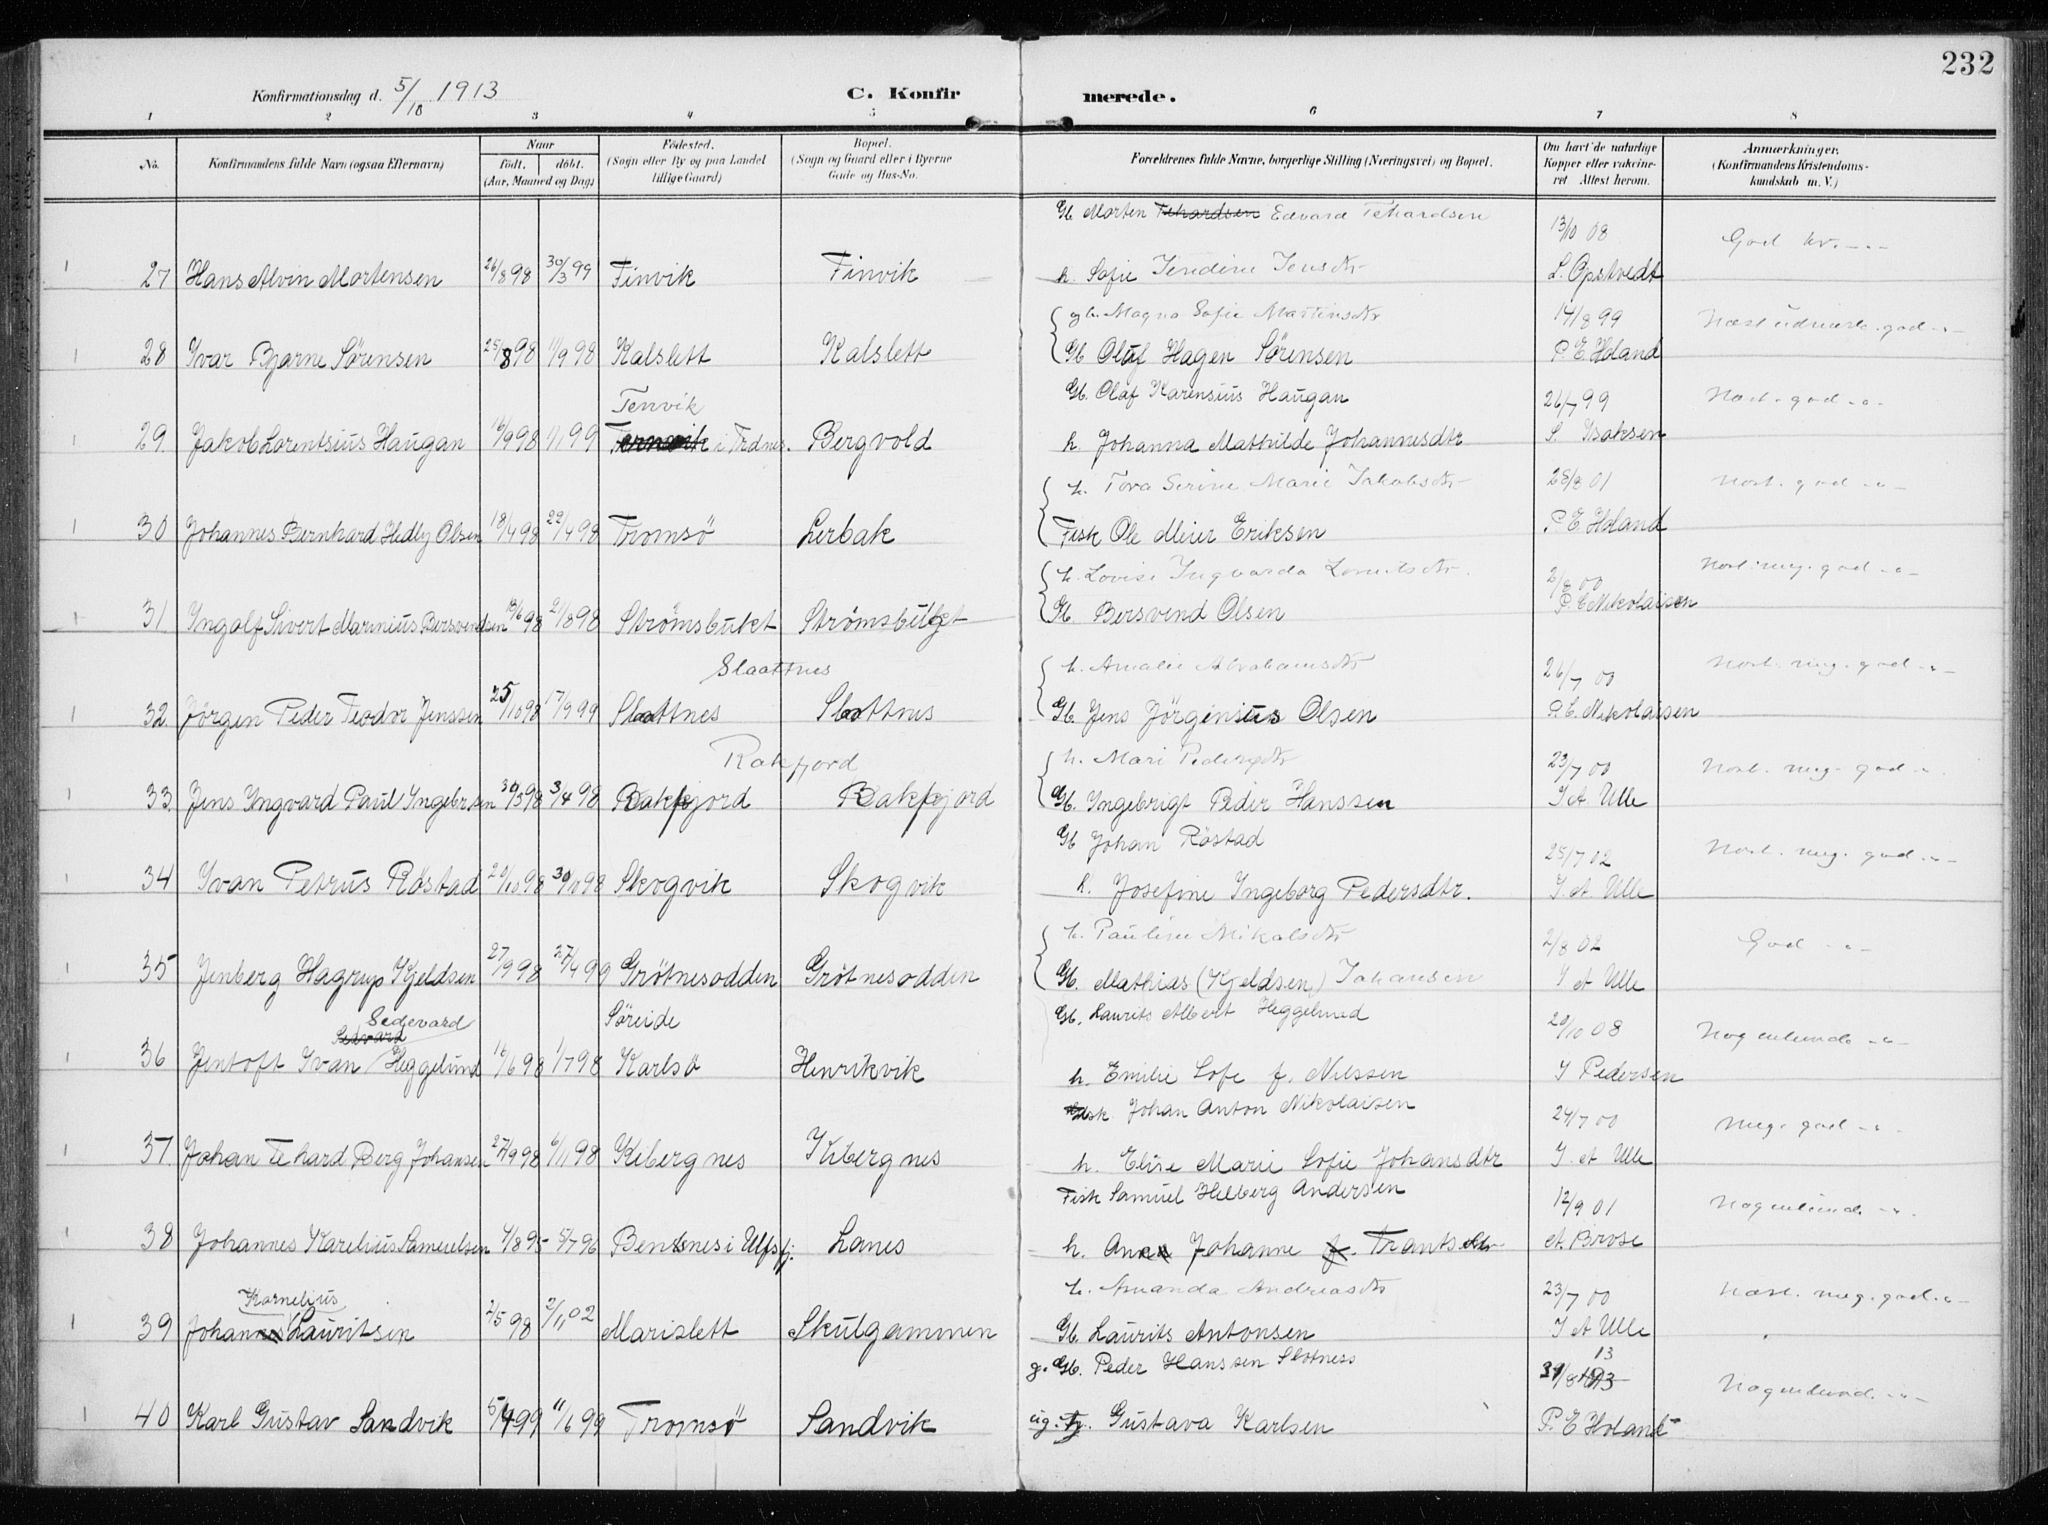 232
Konfirmationsdag d. 5/10 1913
C. Konfirmerede.
1 2 3 4 5 6 7 8
No. Konfirmandens fulde Navn (ogsaa Efternavn) Naar født, døbt. (Aar, Maaned og Dag) Fødested. (Sogn eller By og paa Landet tillige Gaard) Bopæl. (Sogn og Gaard eller i Byerne Gade og Hus-No. Forældrenes fulde Navne, borgerlige Stilling (Næringsvei) og Bopæl. Om havt de naturlige Kopper eller vakcineret Attest herom. Anmærkninger. (Konfirmandens Kristendomskundskab m. V.)
Gb. Morten Tehardsen Edvard Tehardsen 13/10 08 God kr.
1 27 Hans Alvin Mortensen 26/8 98 30/3 99 Finvik Finvik h. Sofie Jendine Jensdtr L. Opstvedt
h. Magna Sofie Martinsdtr 14/8 99 Næst udmærk. god
1 28 Ivar Bjarne Sørensen 25/8 98 11/9 98 Kalslett Kalslett Gb Oluf Hagen Sørensen P. E. Holand
Tenvik Gb. Olaf Karensius Haugan 26/7 99 Næst. god
1 29. Jakob Lorentsius Haugan 16/9 98 1/1 99 i Trdnes. Bergvold h. Johanna Mathilde Johannesdtr S. Isaksen
h. Tova Serine Marie Jakobsdtr 28/8 01 Næst. god
1 30 Johannes Bernhard Hedly Olsen 18/4 98 22/4 98 Tromsö Lerbak Fisk Ole Meier Eriksen P. E. Holand
h. Lovise Ingvarda Lorentsdtr. 2/8 00 Næst. meg. god
1 31 Ingolf Sivert Marinius Bersvendsen 13/6 98 21/8 98 Strømsbukt Strømsbuket Gb Bersvend Olsen P. E. Nikolaisen
Slaattnes h. Amalie Abrahamsdtr 26/7 00 Næst. meg. god
1 32 Jörgen Peder Teodor Jenssen 25/10 98 17/9 99 Slaattnes Slaattnes Gb. Jens Jörginius Olsen P. E. Nikolaisen
Rakfjord h. Mari Pedersdtr 23/7 00 Næst. meg. god
1 33. Jens Ingvard Paul Ingebr.sen 30/3 98 3/4 98 Rakfjord Rakfjord Gb. Ingebrigt Peder Hanssen J A Ulle
Gb Johan Röstad 25/7 02 Næst. meg. god
1 34 Ivan Petrus Röstad 20/10 98 30/10 98 Skogvik Skogvik h. Josefine Ingeborg Pedersdtr. J. A. Ulle
h. Pauline Mikalsdtr 2/8 02 God
1 35 Jenberg Hagrup Kjeldsen 27/9 98 27/4 99 Grötnesodden Grötnesodden Gb. Mathias (Kjeldsen) Johansen J A Ulle
Sedevard Söreide Gb. Laurits Albert Heggelund 20/10 08 Nogenlunde
Sedvard
1 36 Jentoft Ivan Heggelund 16/6 98 1/7 98 Karlsö Henrikvik h. Emilie Sofe f. Nilssen J Pedersen
Fisk. Johan Anton Nikolaisen 24/7 00 Meg. god
1 37. Johan Tehard Berg Johansen 27/9 98 6/11 98 Kibergnes Kibergnes h. Elise Marie Sofie Johansdtr J. A Ulle
Fisk Samuel Hilberg Andersen 12/9 01 Nogenlund.
1 38 Johannes Karelius Samuelsen 4/8 95 5/7 96 Bentsnes i Ulfsfj. Lanes h. Anna Johanne f. Trantsdtr A. Brose
Kornelius h. Amanda Andreasdtr 23/7 00 Næst. meg. god.
1 39 Johannes Lauritsen 2/5 98 2/11 02 Marislett Skulgammen Gb. Laurits Antonsen J A Ulle
g. Gb. Peder Hanssen Slotness 31/8 13 Nogenlund.
1 40 Karl Gustav Sandvik 5/4 99 11/6 99 Tromsö Sandvik ug. Tj. Gustava Karlsen P. E Holand